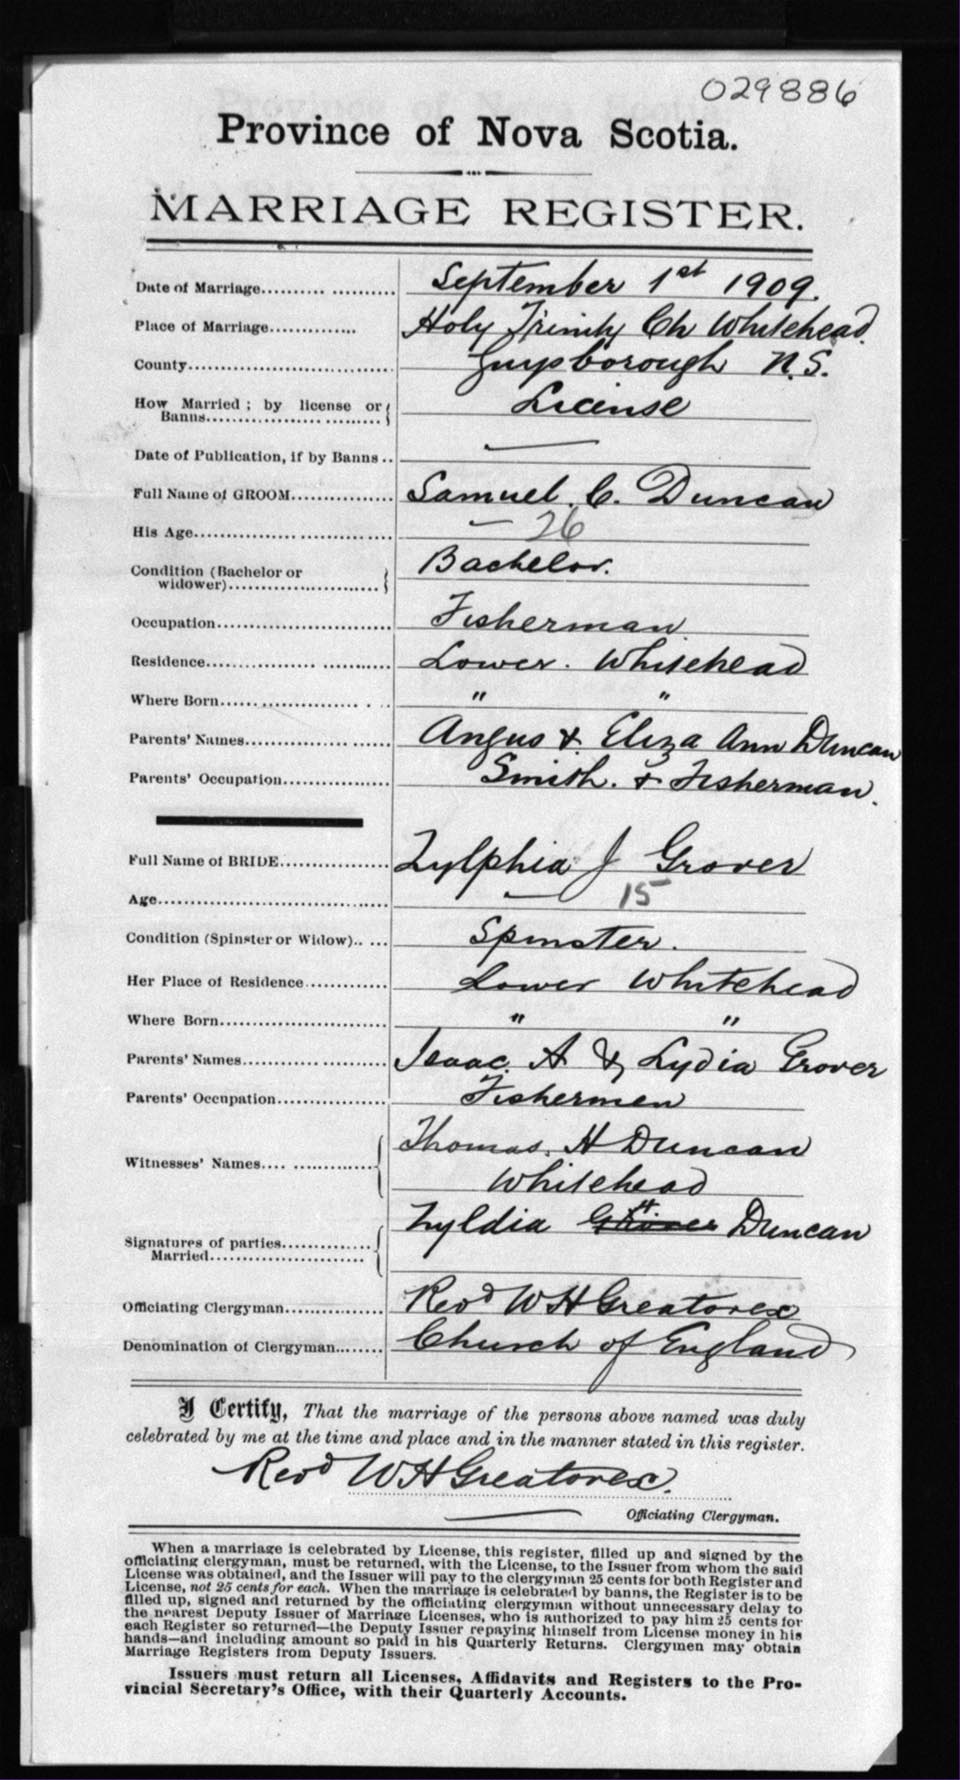 029886
Province of Nova Scotia.
MARRIAGE REGISTER.
Date of Marriage.......... .......... September 1st 1909.
Place of Marriage............. Holy Trinity Ch Whitehead.
County.............................. Guysborough N.S.
How Married ; by license or License
Banns.............................
Date of Publication, if by Banns .. —
Full Name of GROOM............... Samuel. C. Duncan
His Age............................ — 26
Condition (Bachelor or Bachelor.
widower)......................
Occupation.......................... Fisherman
Residence................ .......... Lower. Whitehead
Where Born...................... . .. " "
Parents' Names...................... Angus & Eliza Ann Duncan
Parents' Occupation................ Smith. & Fisherman.
Full Name of BRIDE................ Zylphia J Grover
Age.................................. — 15
Condition (Spinster or Widow).. ... Spinster.
Her Place of Residence............ Lower Whitehead
Where Born......................... " "
Parents' Names..................... Isaac. A & Lydia Grover
Parents' Occupation................ Fishermen
Thomas. H Duncan
Witnesses' Names.... .............. Whitehead
Zyldia Grover H. Duncan
Signatures of parties..............
Married.......................
Officiating Clergyman.............. Revd W H Greatorex
Denomination of Clergyman........ Church of England
I Certify, That the marriage of the persons above named was duly
celebrated by me at the time and place and in the manner stated in this register.
Revd W H Greatorex.
Officiating Clergyman.
When a marriage is celebrated by License, this register, filled up and signed by the
officiating clergyman, must be returned, with the License, to the Issuer from whom the said
License was obtained, and the Issuer will pay to the clergyman 25 cents for both Register and
License, not 25 cents for each. When the marriage is celebrated by banns, the Register is to be
filled up, signed and returned by the officiating clergyman without unnecessary delay to
the nearest Deputy Issuer of Marriage Licenses, who is authorized to pay him 25 cents for
each Register so returned—the Deputy Issuer repaying himself from License money in his
hands—and including amount so paid in his Quarterly Returns. Clergymen may obtain
Marriage Registers from Deputy Issuers.
Issuers must return all Licenses, Affidavits and Registers to the Pro-
vincial Secretary's Office, with their Quarterly Accounts.